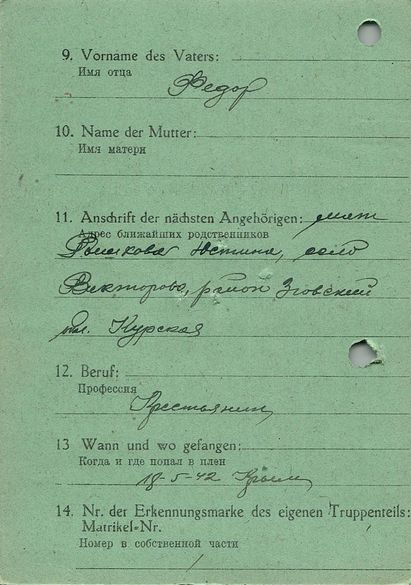 9. Vorname des Vaters:
Имя отца
Федор
10. Name der Mutter:
Имя матери
11. Anschrift der nächsten Angehörigen: мать
Адрес ближайших родственников
Юстина, село
Викторово, район
обл. Курская
12. Beruf:
Профессия
Крестьянин
13 Wann und wo gefangen:
Когда и где попал в плен
18-5-42 Крым
14. Nr. der Erkennungsmarke des eigenen Truppenteils:
Matrikel-Nr.
Номер в собственной части
/